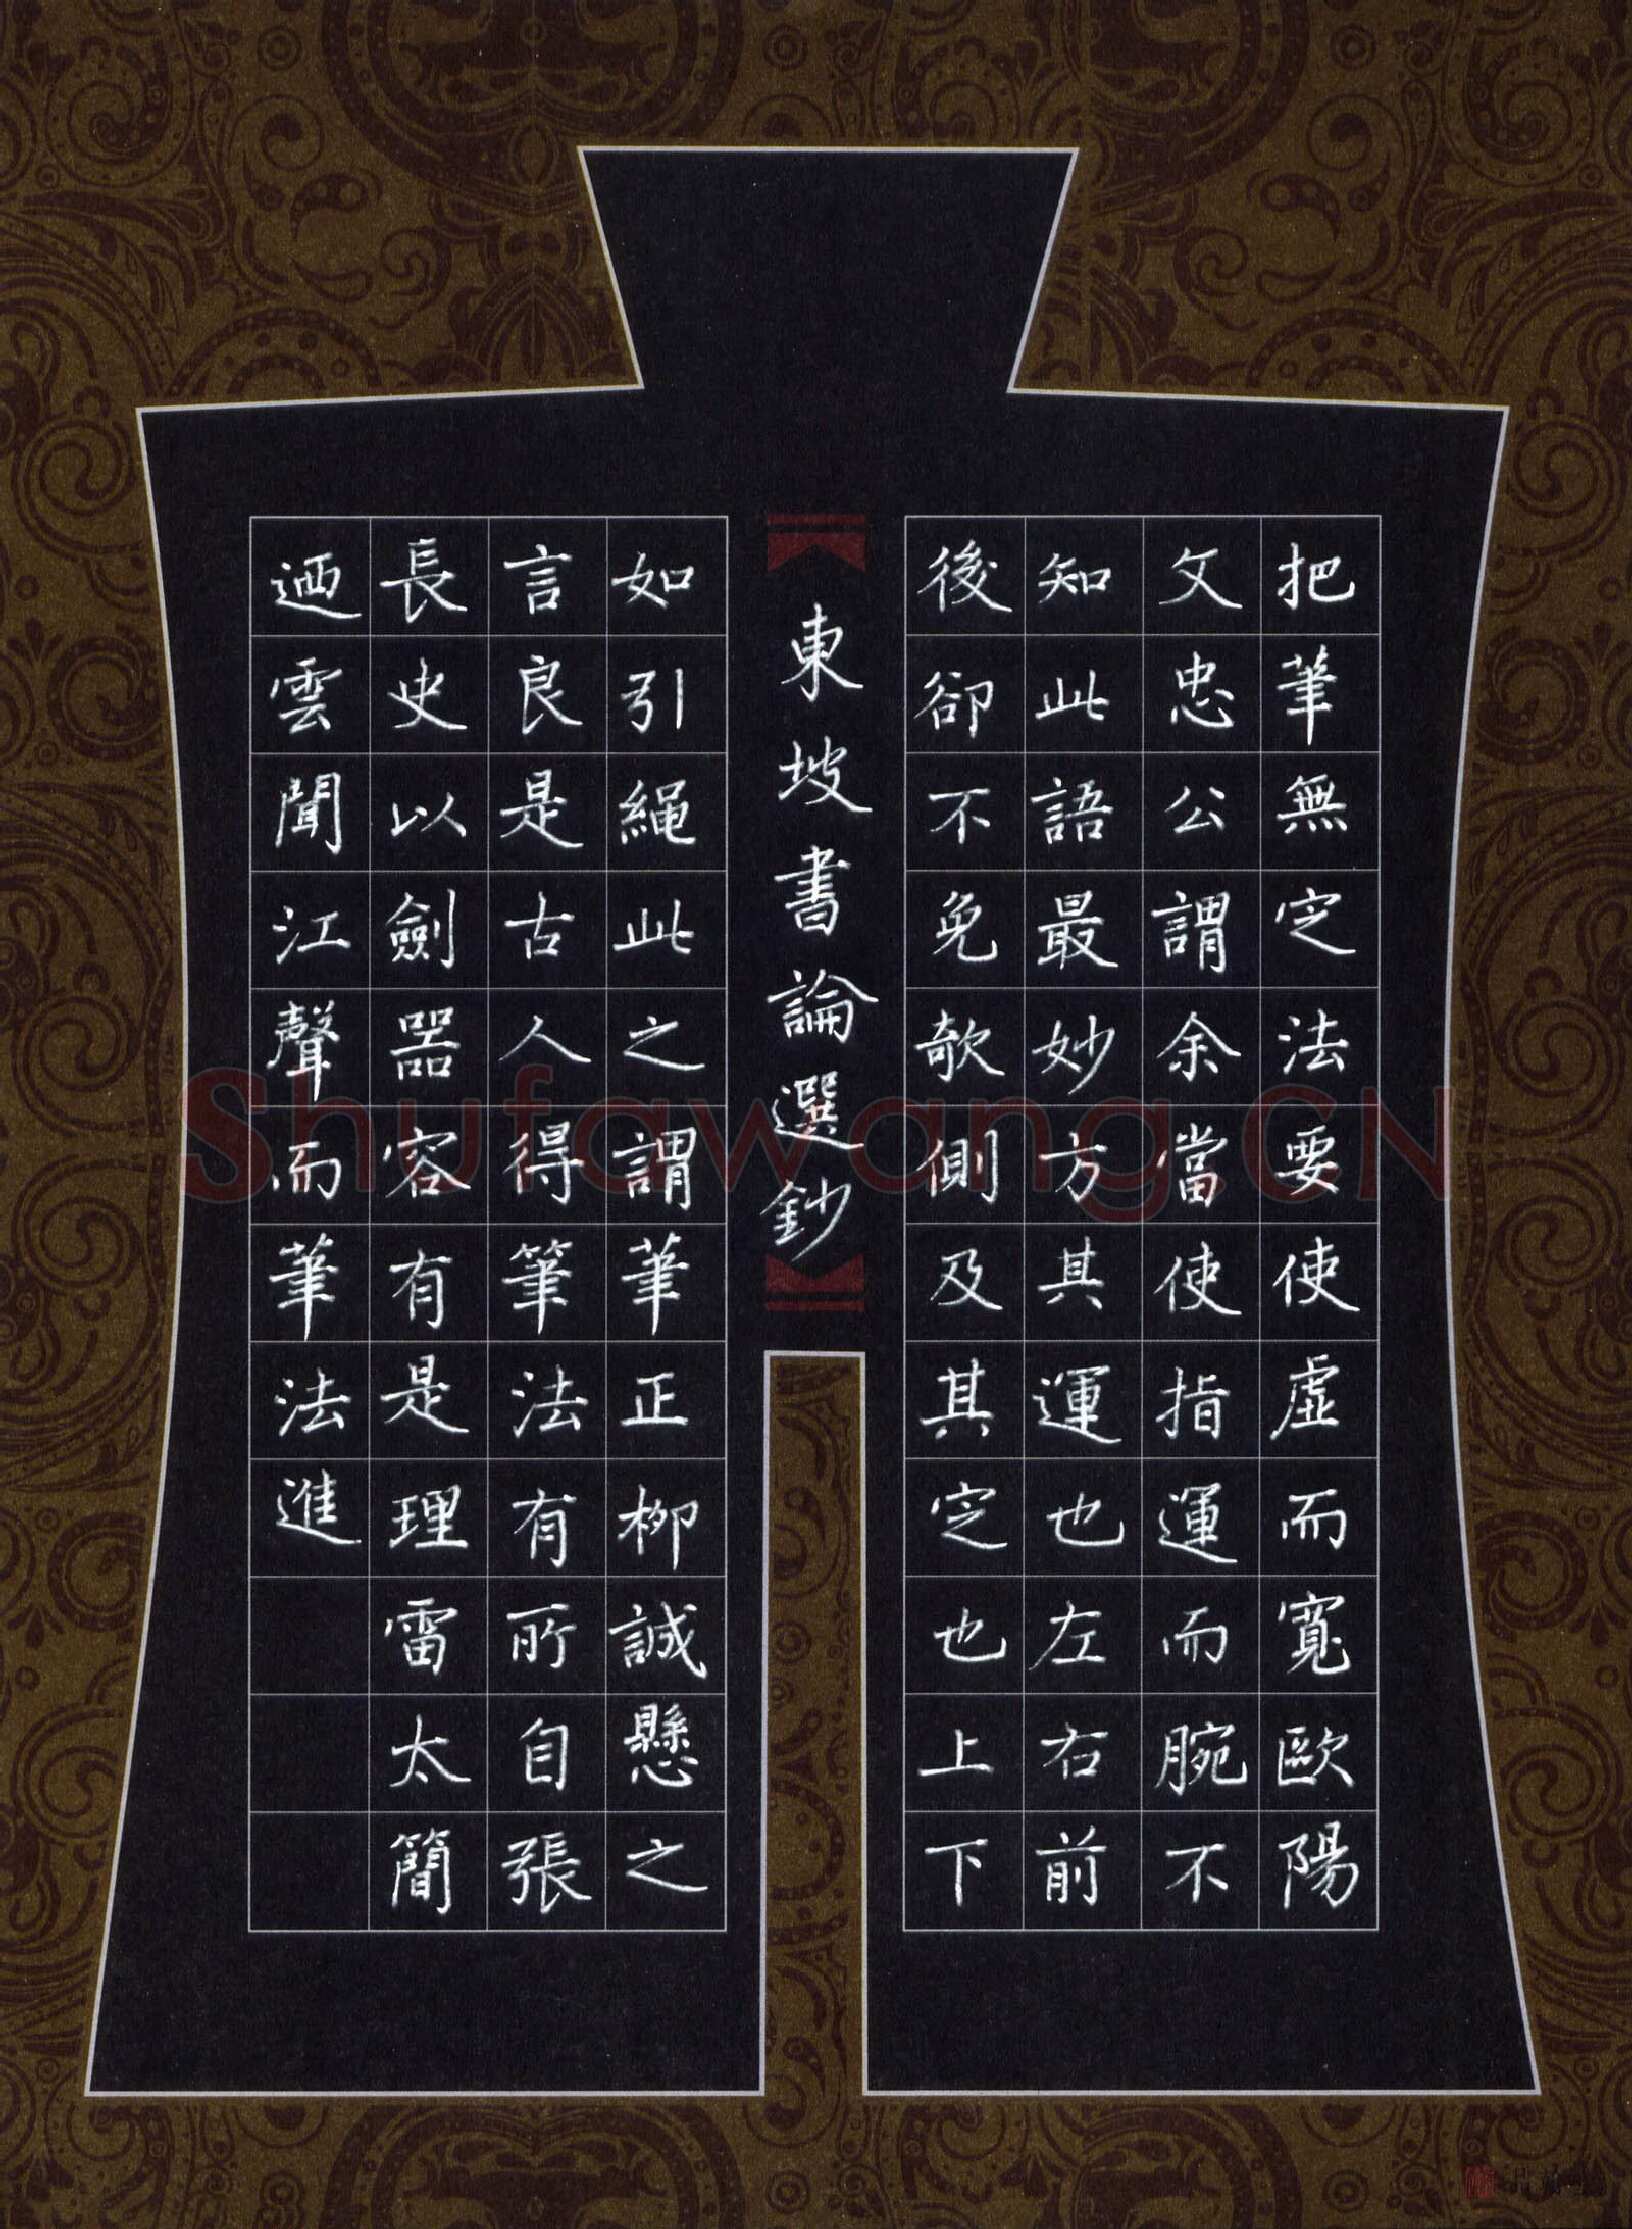 把筆無定法要使虛而寬歐陽
文忠公謂余當使指運而腕不
知此語最妙方其運也左右前
後卻不免欹側及其定也上下
東坡書論選鈔
如引繩此之謂筆正柳誠懸之
言良是古人得筆法有所自張
長史以劍器容有是理雷太簡
迺雲聞江聲而筆法進
Shufawang.CN